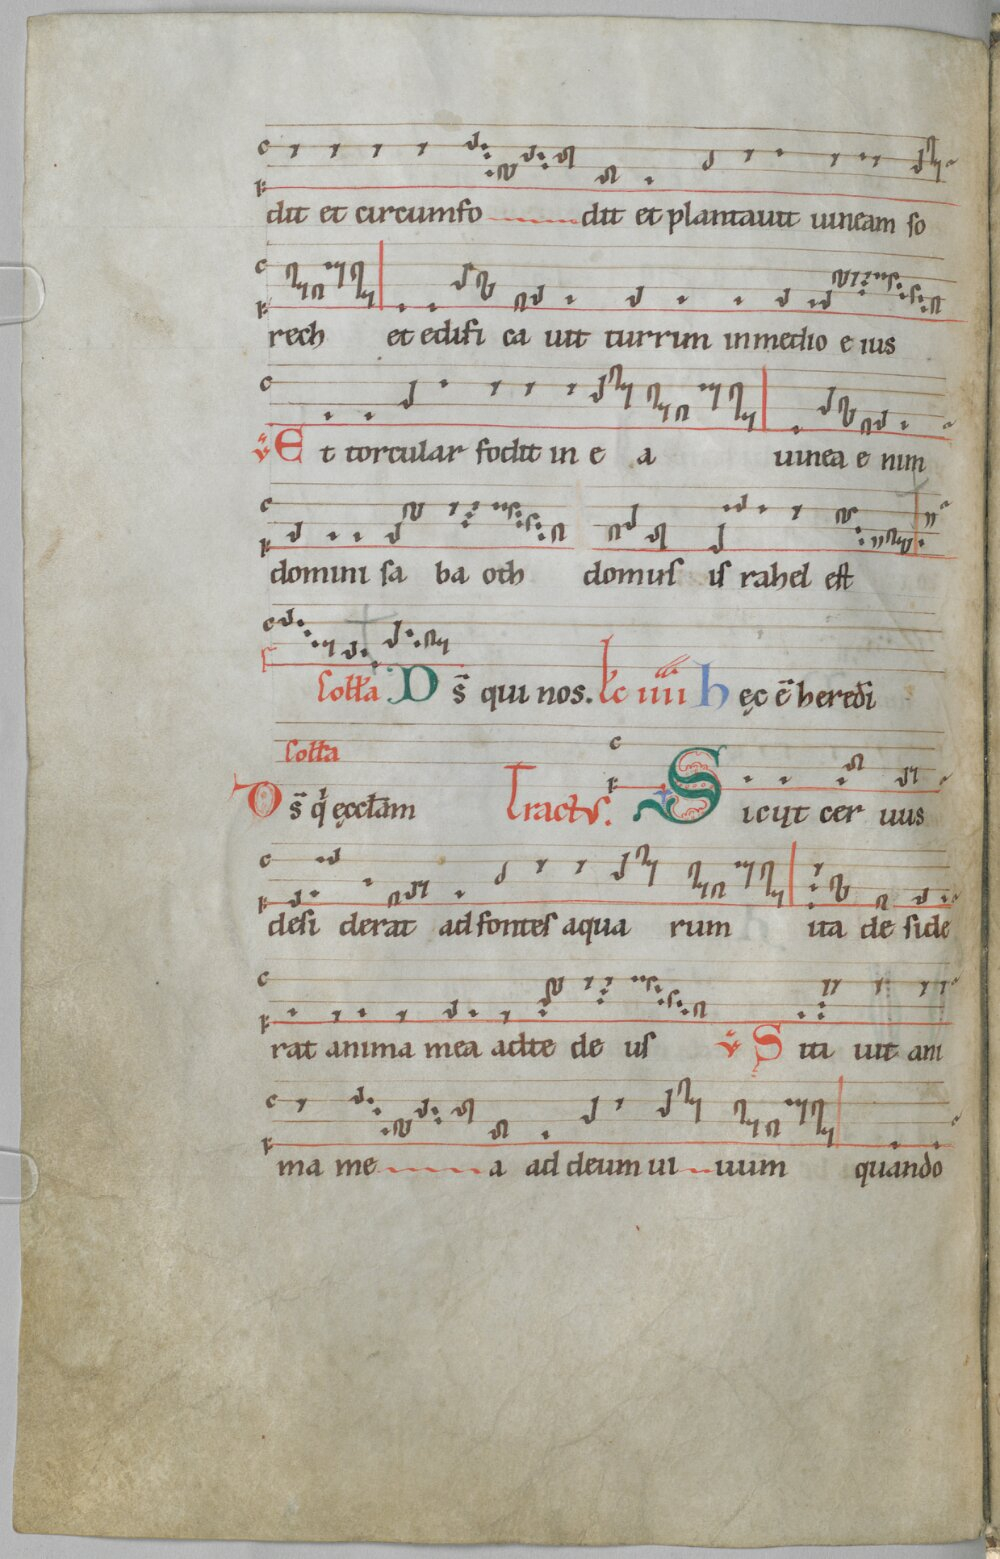 dit et circumfo dit et plantauit uineam so
rech et edifi ca uit turrim inmedio e ius
℣ E t torcular fodit in e a uinea e nim
domini sa ba oth domus is rahel est
Coll̄a D s̄ qui nos. Lc̄ iiii h ęc ē heredi
Coll̄a
D s̄ q̇ ęccl̄am Tractus. S icut cer uus
desi derat ad fontes aqua rum ita de side
rat anima mea adte de us ℣ S iti uit ani
ma me a ad deum ui uum quando